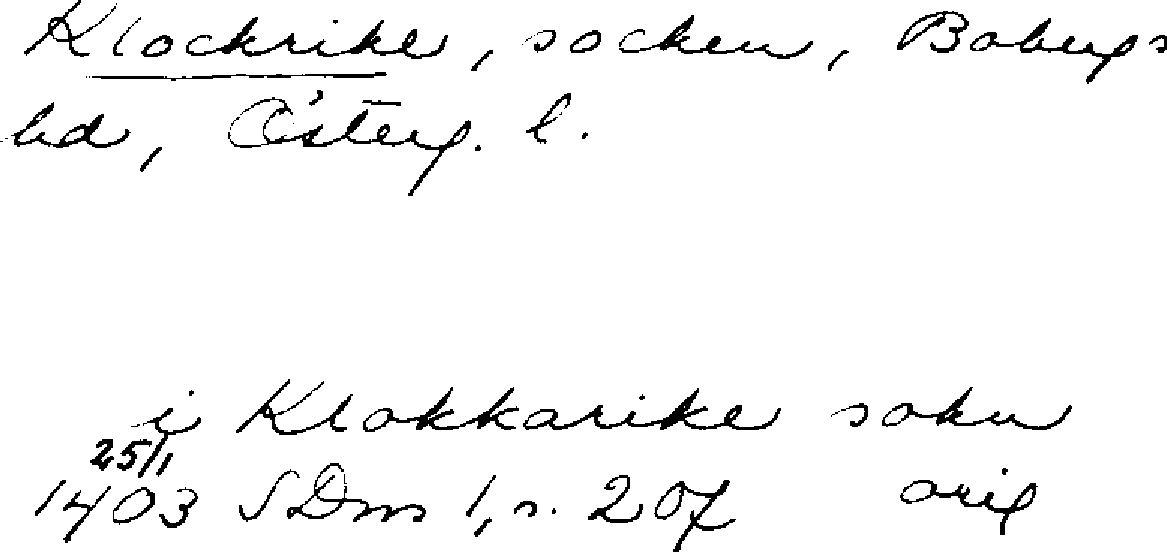 Klockrike, socken, Bobergs
hd, Österg. l.
i Klokkarike sokn
25/1
1403 SDns 1, s. 207 orig